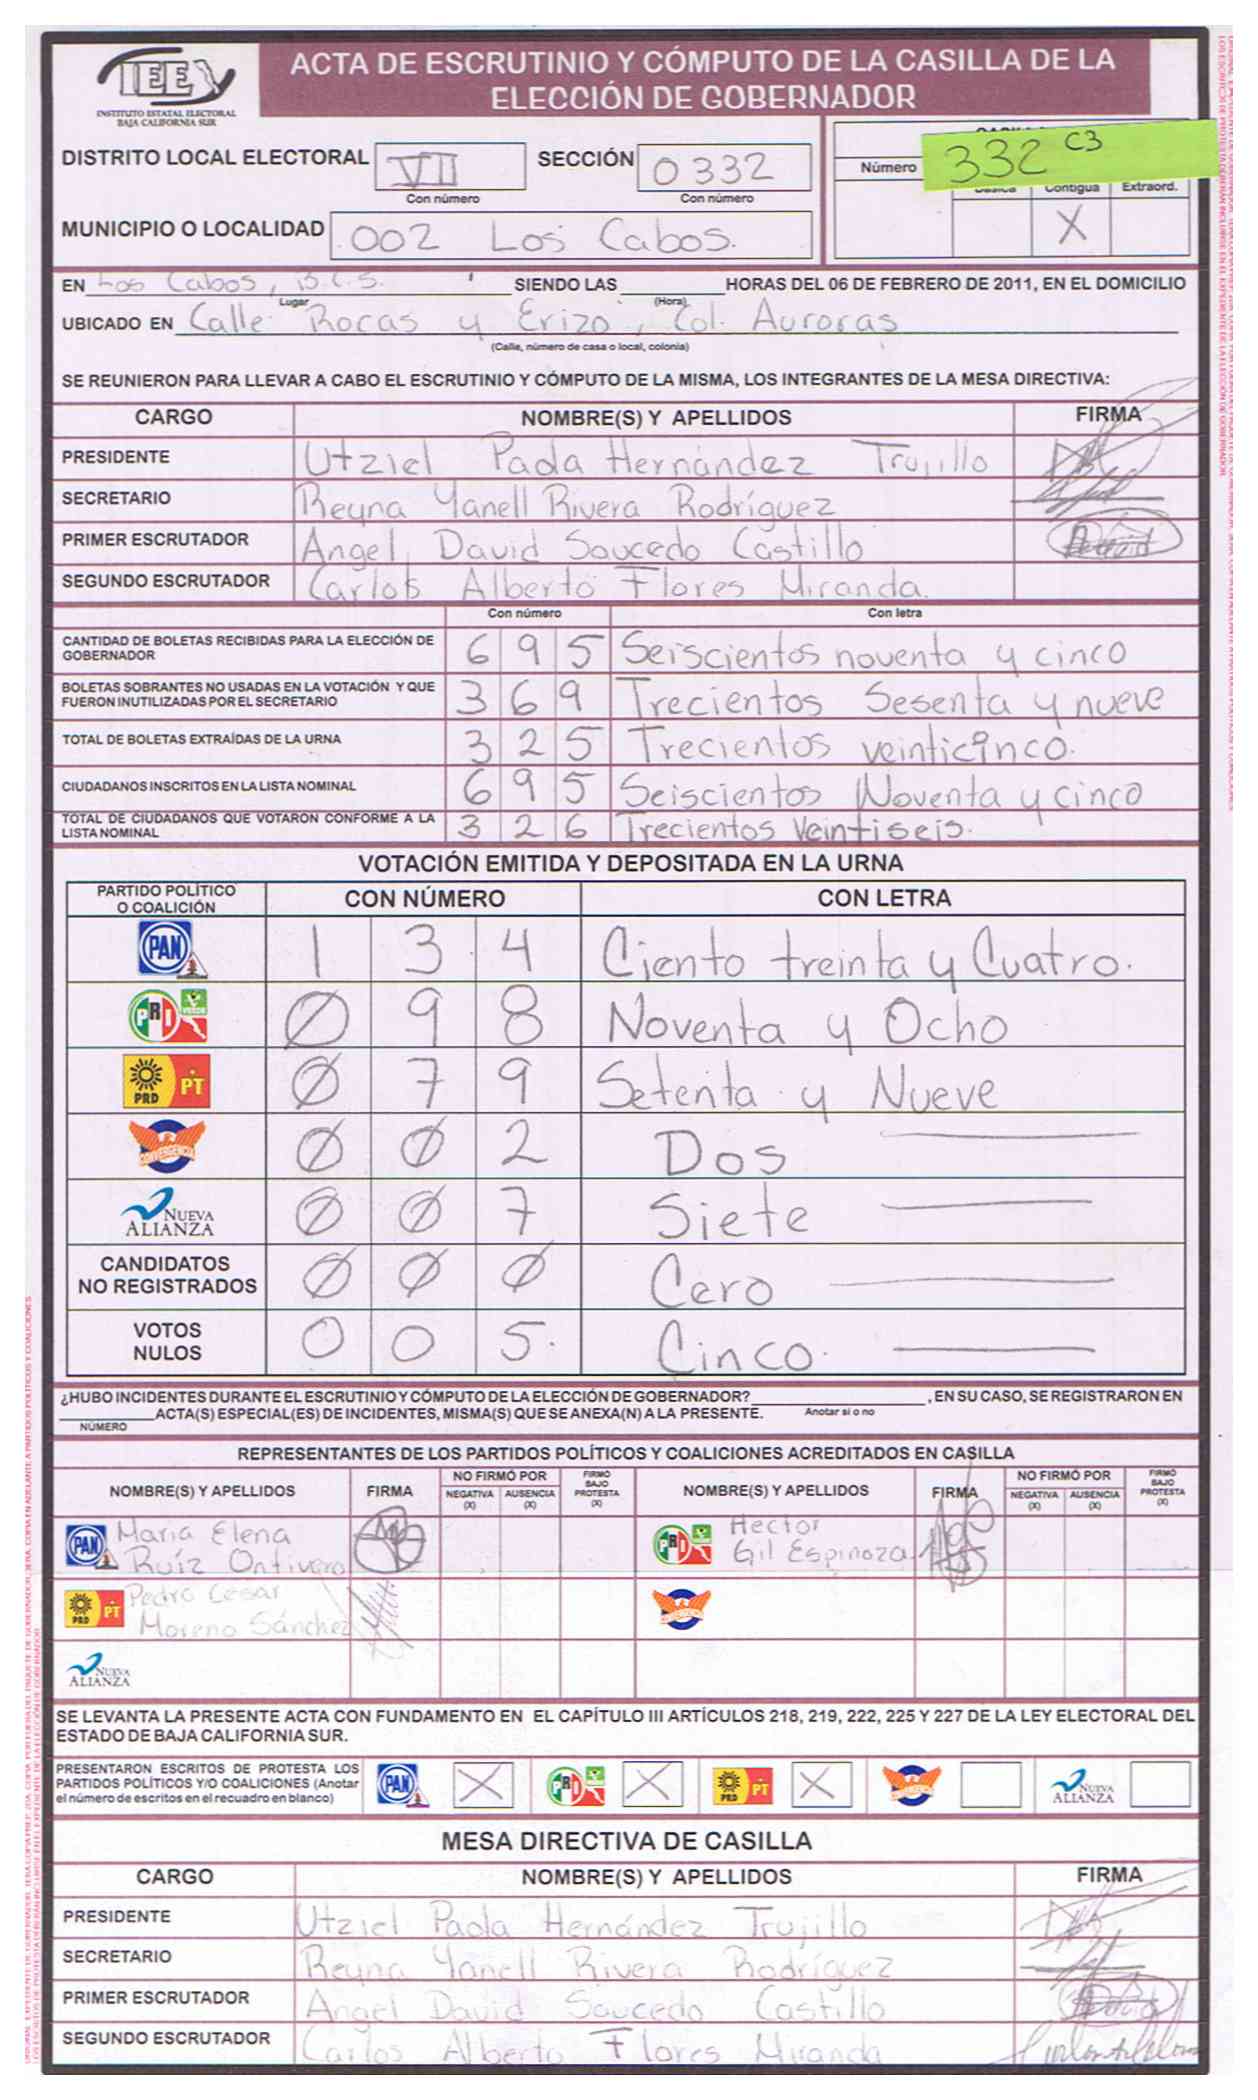 IEE
INSTITUTO ESTATAL ELECTORAL
BAJA CALIFORNIA SUR
ACTA DE ESCRUTINIO Y CÓMPUTO DE LA CASILLA DE LA
ELECCIÓN DE GOBERNADOR
DISTRITO LOCAL ELECTORAL VII SECCIÓN 0332
Con número Con número
Número 332 C3
Contigua Extraord.
X
MUNICIPIO O LOCALIDAD 002 Los Cabos.
EN Los Cabos, B.C.S. SIENDO LAS HORAS DEL 06 DE FEBRERO DE 2011, EN EL DOMICILIO
Lugar (Hora)
UBICADO EN Calle Rocas y Erizo, Col. Auroras
(Calle, número de casa o local, colonia)
SE REUNIERON PARA LLEVAR A CABO EL ESCRUTINIO Y CÓMPUTO DE LA MISMA, LOS INTEGRANTES DE LA MESA DIRECTIVA:
CARGO NOMBRE(S) Y APELLIDOS FIRMA
PRESIDENTE Utziel Paola Hernández Trujillo
SECRETARIO Reyna Yanell Rivera Rodríguez
PRIMER ESCRUTADOR Angel David Saucedo Castillo
SEGUNDO ESCRUTADOR Carlos Alberto Flores Miranda.
Con número Con letra
CANTIDAD DE BOLETAS RECIBIDAS PARA LA ELECCIÓN DE
GOBERNADOR 6 9 5 Seiscientos noventa y cinco
BOLETAS SOBRANTES NO USADAS EN LA VOTACIÓN Y QUE
FUERON INUTILIZADAS POR EL SECRETARIO 3 6 9 Trecientos Sesenta y nueve
TOTAL DE BOLETAS EXTRAÍDAS DE LA URNA 3 2 5 Trecientos veinticinco.
CIUDADANOS INSCRITOS EN LA LISTA NOMINAL 6 9 5 Seiscientos Noventa y cinco
TOTAL DE CIUDADANOS QUE VOTARON CONFORME A LA
LISTA NOMINAL 3 2 6 Trecientos Veintiseis.
VOTACIÓN EMITIDA Y DEPOSITADA EN LA URNA
PARTIDO POLÍTICO
O COALICIÓN CON NÚMERO CON LETRA
PAN 1 3 4 Ciento treinta y Cuatro.
PRI VERDE 0 9 8 Noventa y Ocho
PRD PT 0 7 9 Setenta y Nueve
CONVERGENCIA 0 0 2 Dos
NUEVA ALIANZA 0 0 7 Siete
CANDIDATOS
NO REGISTRADOS 0 0 0 Cero
VOTOS
NULOS 0 0 5. Cinco.
¿HUBO INCIDENTES DURANTE EL ESCRUTINIO Y CÓMPUTO DE LA ELECCIÓN DE GOBERNADOR? , EN SU CASO, SE REGISTRARON EN
ACTA(S) ESPECIAL(ES) DE INCIDENTES, MISMA(S) QUE SE ANEXA(N) A LA PRESENTE. Anotar si o no
NÚMERO
REPRESENTANTES DE LOS PARTIDOS POLÍTICOS Y COALICIONES ACREDITADOS EN CASILLA
NOMBRE(S) Y APELLIDOS FIRMA NO FIRMÓ POR NEGATIVA (X) AUSENCIA (X) FIRMÓ BAJO PROTESTA (X) NOMBRE(S) Y APELLIDOS FIRMA NO FIRMÓ POR NEGATIVA (X) AUSENCIA (X) FIRMÓ BAJO PROTESTA (X)
PAN María Elena
Ruíz Ontivero
PRI Hector
Gil Espinoza
PRD PT Pedro César
Moreno Sánchez
CONVERGENCIA
NUEVA ALIANZA
SE LEVANTA LA PRESENTE ACTA CON FUNDAMENTO EN EL CAPÍTULO III ARTÍCULOS 218, 219, 222, 225 Y 227 DE LA LEY ELECTORAL DEL
ESTADO DE BAJA CALIFORNIA SUR.
PRESENTARON ESCRITOS DE PROTESTA LOS
PARTIDOS POLÍTICOS Y/O COALICIONES (Anotar
el número de escritos en el recuadro en blanco) PAN X PRI X PRD PT X CONVERGENCIA NUEVA ALIANZA
MESA DIRECTIVA DE CASILLA
CARGO NOMBRE(S) Y APELLIDOS FIRMA
PRESIDENTE Utziel Paola Hernández Trujillo
SECRETARIO Reyna Yanell Rivera Rodríguez
PRIMER ESCRUTADOR Angel David Saucedo Castillo
SEGUNDO ESCRUTADOR Carlos Alberto Flores Miranda